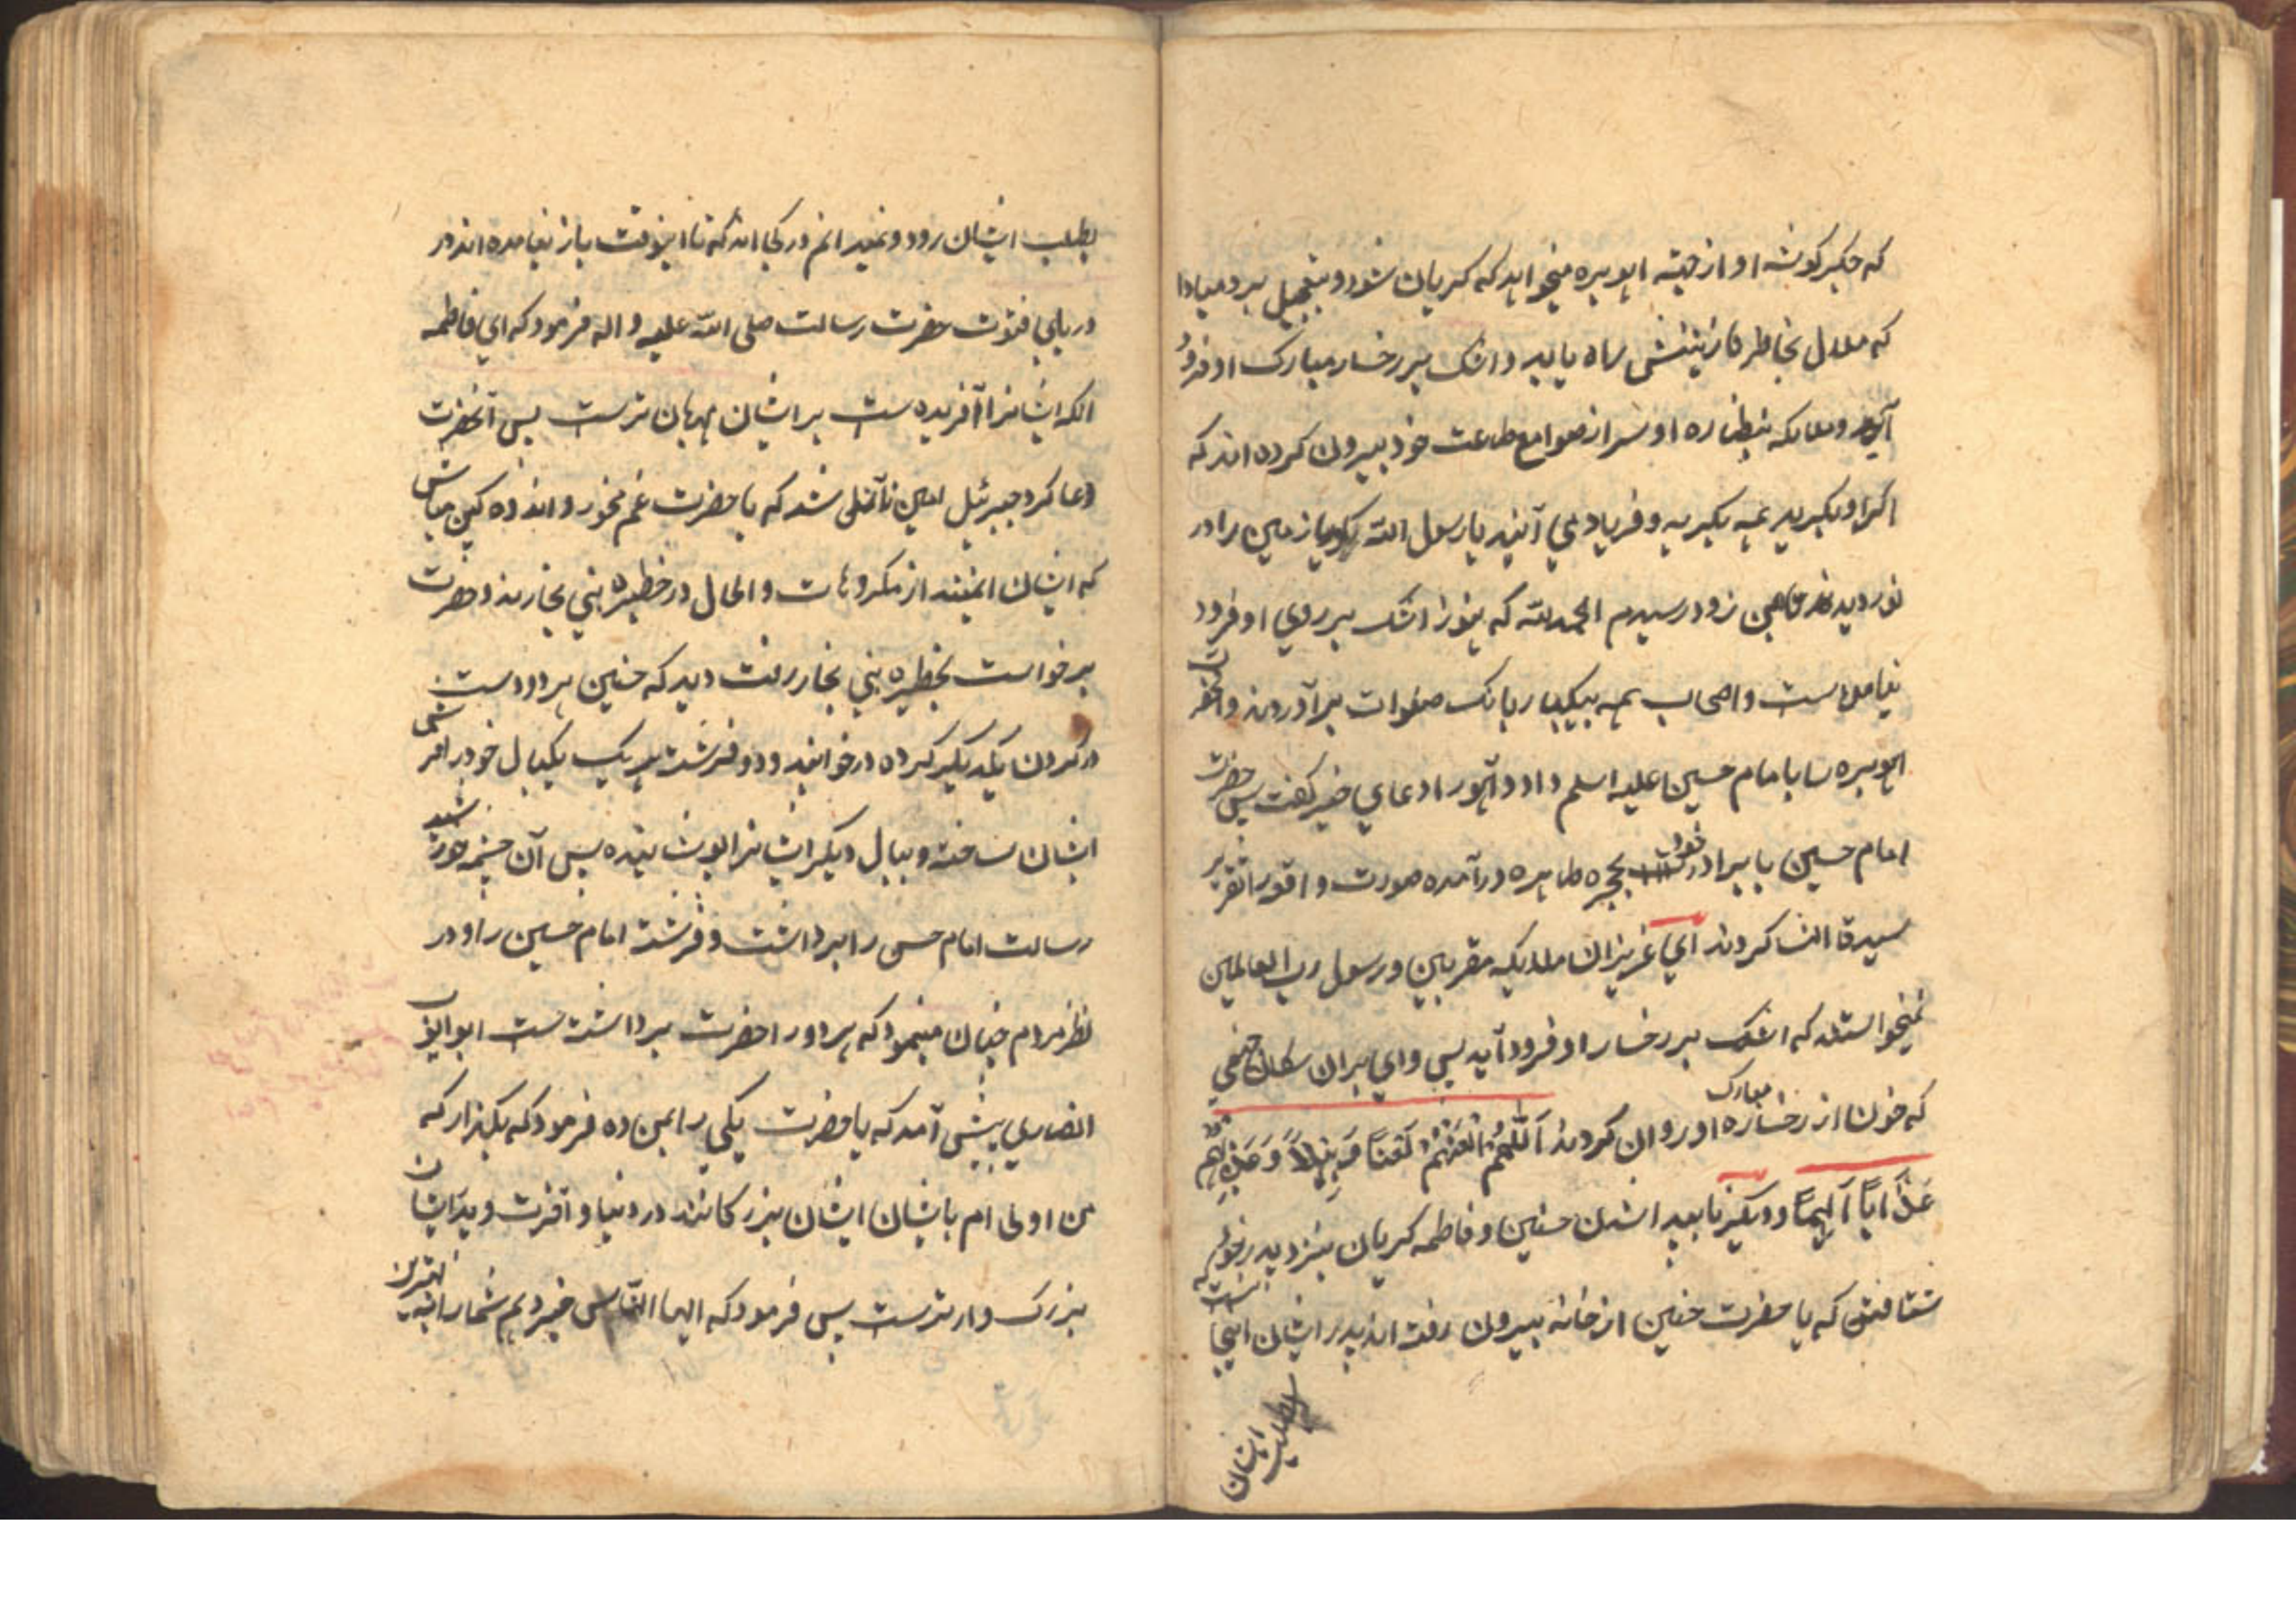 که جگر کوشه او از جهته اهو بره میخواهد که کریان شود و بتعجیل ببر مبادا
که ملال بخاطر نازنینش راه یابد و اشک بر رخسار مبارک او فرود
آید و ملایکه بنظاره او سر از صوامع طاعت خود بیرون کرده اند که
اکر او بکرید همه بکریه و فریاد می آیند یا رسول الله زمین را در
نوردیدند من زود رسیدم الحمد لله که هنوز اشک بر روی او فرود
نیامده است و اصحاب همه بیکبار بانک صلوات برآوردند و آنحضرت
اهو بره را بامام حسین علیه السلم داد و آهو را دعای خیر کفت پس حضرت
امام حسین با برادر خود بحجره طاهره درآمده صورت واقعه را تقریر
سیدة النسا کردند ای عزیزان ملایکه مقربین و رسول رب العالمین
نمیخواستند که اشک بر رخسار او فرود آید پس وای بران سکان جهنمی
که خون از رخساره مبارک او روان کردند اللهم العنهم لعنا وبیلا وعذبهم
عذابا الیما و دیکر نا بعید اشدن حسنین و فاطمه کریان بنزد پدر خود
شتافتن که یا حضرت حسنین از خانه بیرون رفته اند پدر ایشان اینجا نیست که
بطلب ایشان
بطلب ایشان رود و نمیدانم در کجا اند که تا اینوقت باز نیامده اند در
دریای فتوت حضرت رسالت صلی الله علیه و اله فرمود که ای فاطمه
انکه ایشانرا آفریده ست بر ایشان مهربان ترست پس آنحضرت
دعا کرد جبرئیل امین نازل شد که یا حضرت غم مخور و اندوه کین مباش
که ایشان ایمنند از مکروهات و الحال در خطیره بنی نجارند و حضرت
برخواست بخطیره بنی نجار رفت دید که حسنین هر دو دست
در کردن یکدیکر کرده در خوابند و دو فرشته هر یک یکبال خود را فرش
ایشان ساخته و ببال دیکر ایشانرا پوشانیده پس آن چشمه خورشید
رسالت امام حسن را برداشت و فرشته امام حسین را و در
نظر مردم چنان مینمود که هر دو را حضرت برداشته ست ابو ایوب
انصاری پیش آمد که یا حضرت یکی را بمن ده فرمود که بکذار که
من اولی ام بایشان ایشان بزرکانند در دنیا و آخرت و پدر ایشان
بزرک وارترست پس فرمود که ایها الناس خبر دهم شما را به بهترین